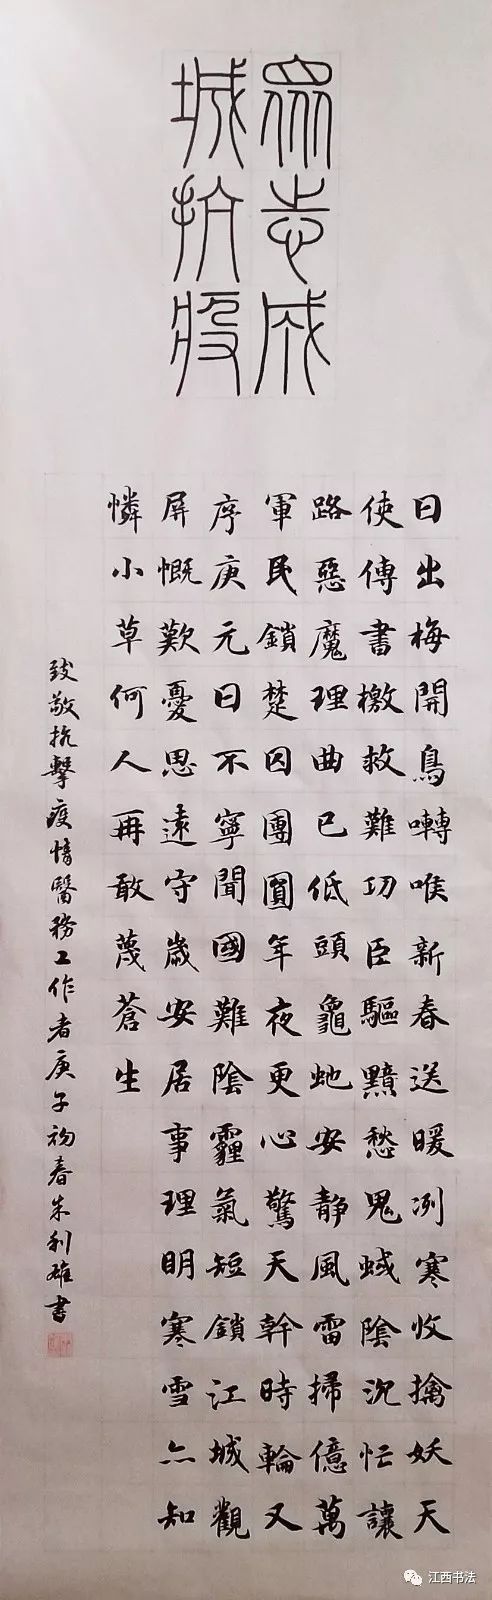 眾志成
城抗疫
日出梅開鳥囀喉新春送暖冽寒收擒妖天
使傳書檄救難功臣驅黯愁鬼蜮陰沉忙讓
路惡魔理曲已低頭龜虵安靜風雷掃億萬
軍民鎖楚囚團圓年夜更心驚天幹時輪又
序庚元日不寧聞國難陰霾氣短鎖江城觀
屏慨歎憂思遠守歲安居事理明寒雪亦知
憐小草何人再敢蔑蒼生
致敬抗擊疫情醫務工作者庚子初春朱利雄書
江西书法